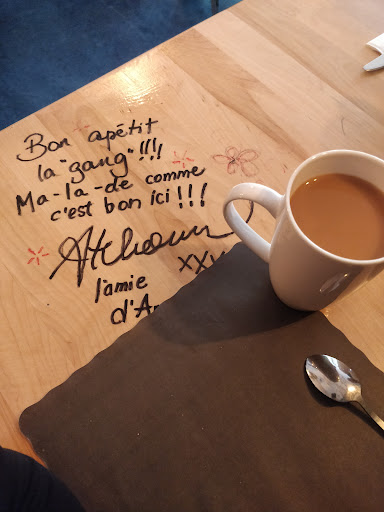 Bon apétit
la "gang" !!!
Ma-la-de comme
c'est bon ici !!!
l'amie
d'A